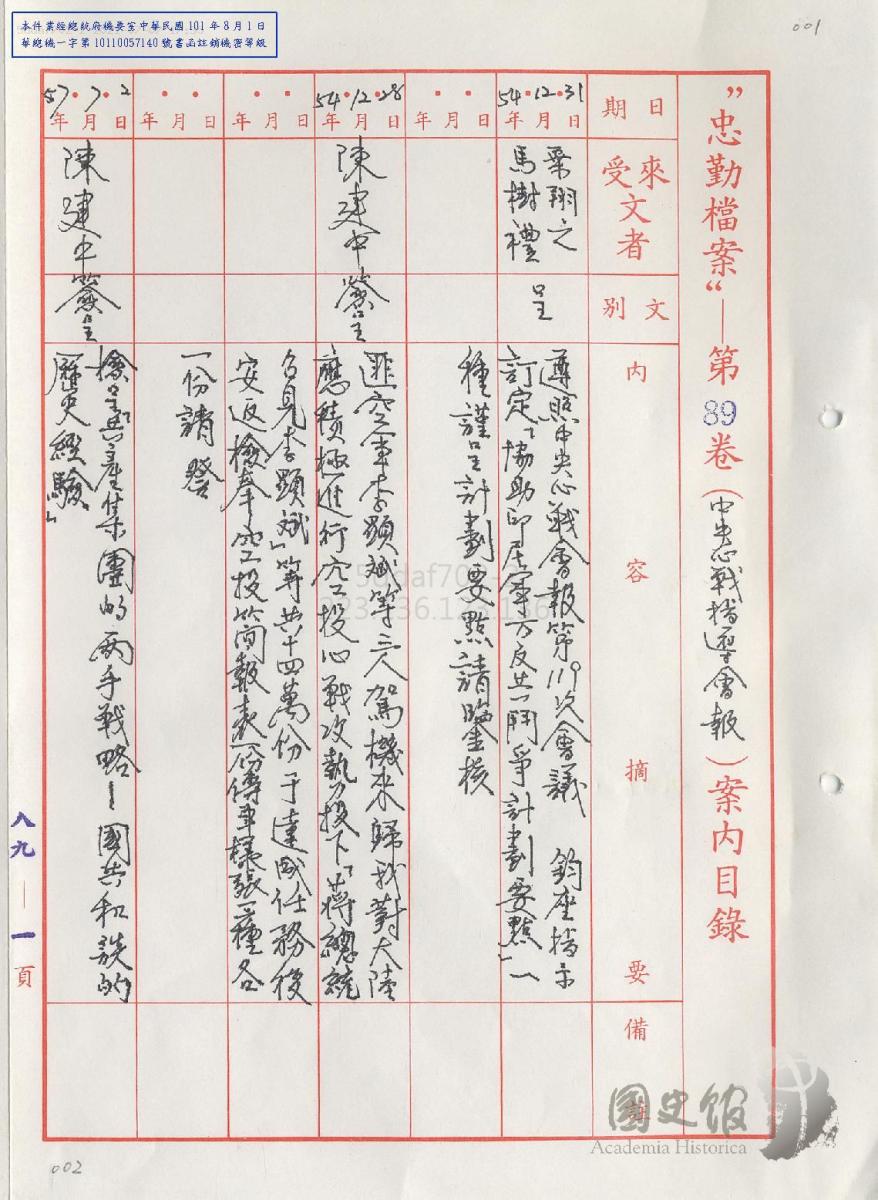 本件業經總統府機要室中華民國101年8月1日
華總機一字第10110057140號書函註銷機密等級
001
"忠勤檔案"—第89卷（中央心戰指導會報）案內目錄
日期
來受文者
文別
內容摘要
備註
54·12·31
年月日
葉翔之
馬樹禮
呈
遵照中央心戰會報第119次會議 鈞座指示
訂定「協助印尼軍方反共鬥爭計劃要點」一
種謹呈計劃要點請鑒核
年月日
54·12·28
年月日
陳建中
簽呈
匪空軍李顯斌等三人駕機來歸我對大陸
應積極進行空投心戰攻勢乃投下「蔣總統
召見李顯斌」等共十四萬份于達成任務後
安返檢奉空投簡報表一份傳單樣張一種各
一份請詧
年月日
年月日
57·7·2
年月日
陳建中
簽呈
檢呈「共產集團的兩手戰略—國共和談的
歷史經驗」
八九—一頁
國史館
Academia Historica
002